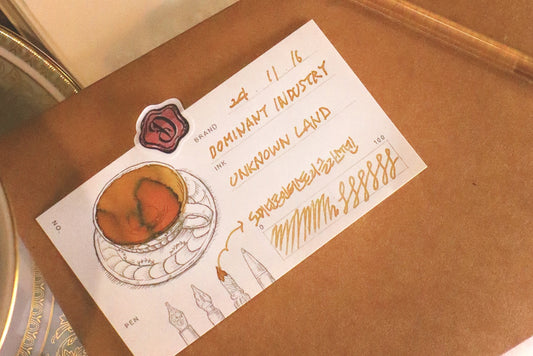 24. 11. 16
BRAND DOMINANT INDUSTRY
INK UNKNOWN LAND
NO.
0 100
PEN